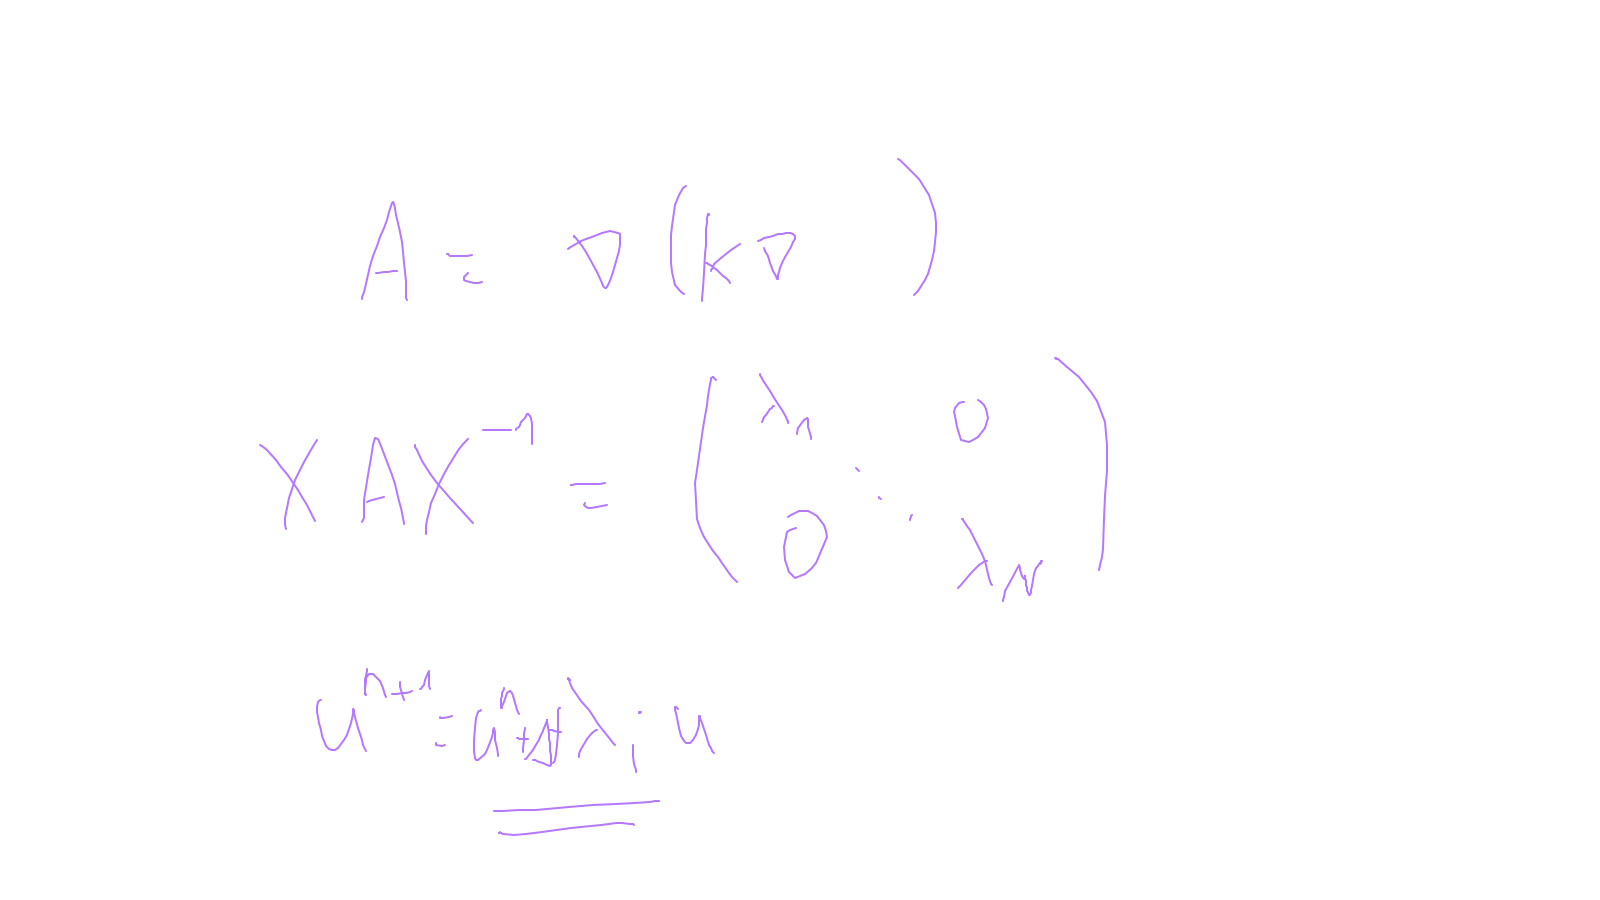 A = ∇(k∇ )
XAX⁻¹ = (λ₁ ⋱ λ_N) 0 0
uⁿ⁺¹ = uⁿ + Δt λᵢ u